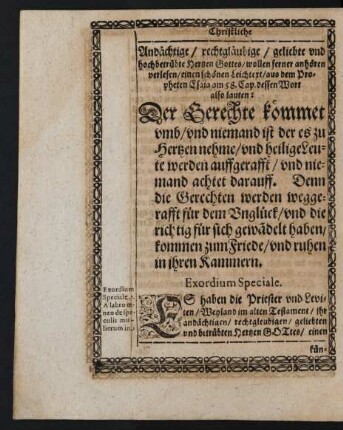 Christliche
Andächtige/ rechtgläubige/ geliebte vnd
hochbetrübte Hertzen Gottes/ wollen ferner anhören
verlesen/ einen schönen Leichtext/ aus dem Pro-
pheten Esaia am 58. Cap. dessen Wort
also lauten:
Der Gerechte kömmet
vmb/ vnd niemand ist der es zu
Hertzen nehme/ vnd heilige Leu-
te werden auffgerafft/ vnd nie-
mand achtet darauff. Denn
die Gerechten werden wegge-
rafft für dem Vnglück/ vnd die
richtig für sich gewädelt haben/
kommen zum Friede/ vnd ruhen
in ihren Kammern.
Exordium Speciale.
Exordium
Speciale,
A labro æ-
neo de spe-
culis mu-
lierum in,
ES haben die Priester vnd Levi-
ten/ Weyland im alten Testament/ ihr
andächtigen/ rechtgleubigen/ geliebten
vnd betrübten Hertzen GOttes/ einen
kün-